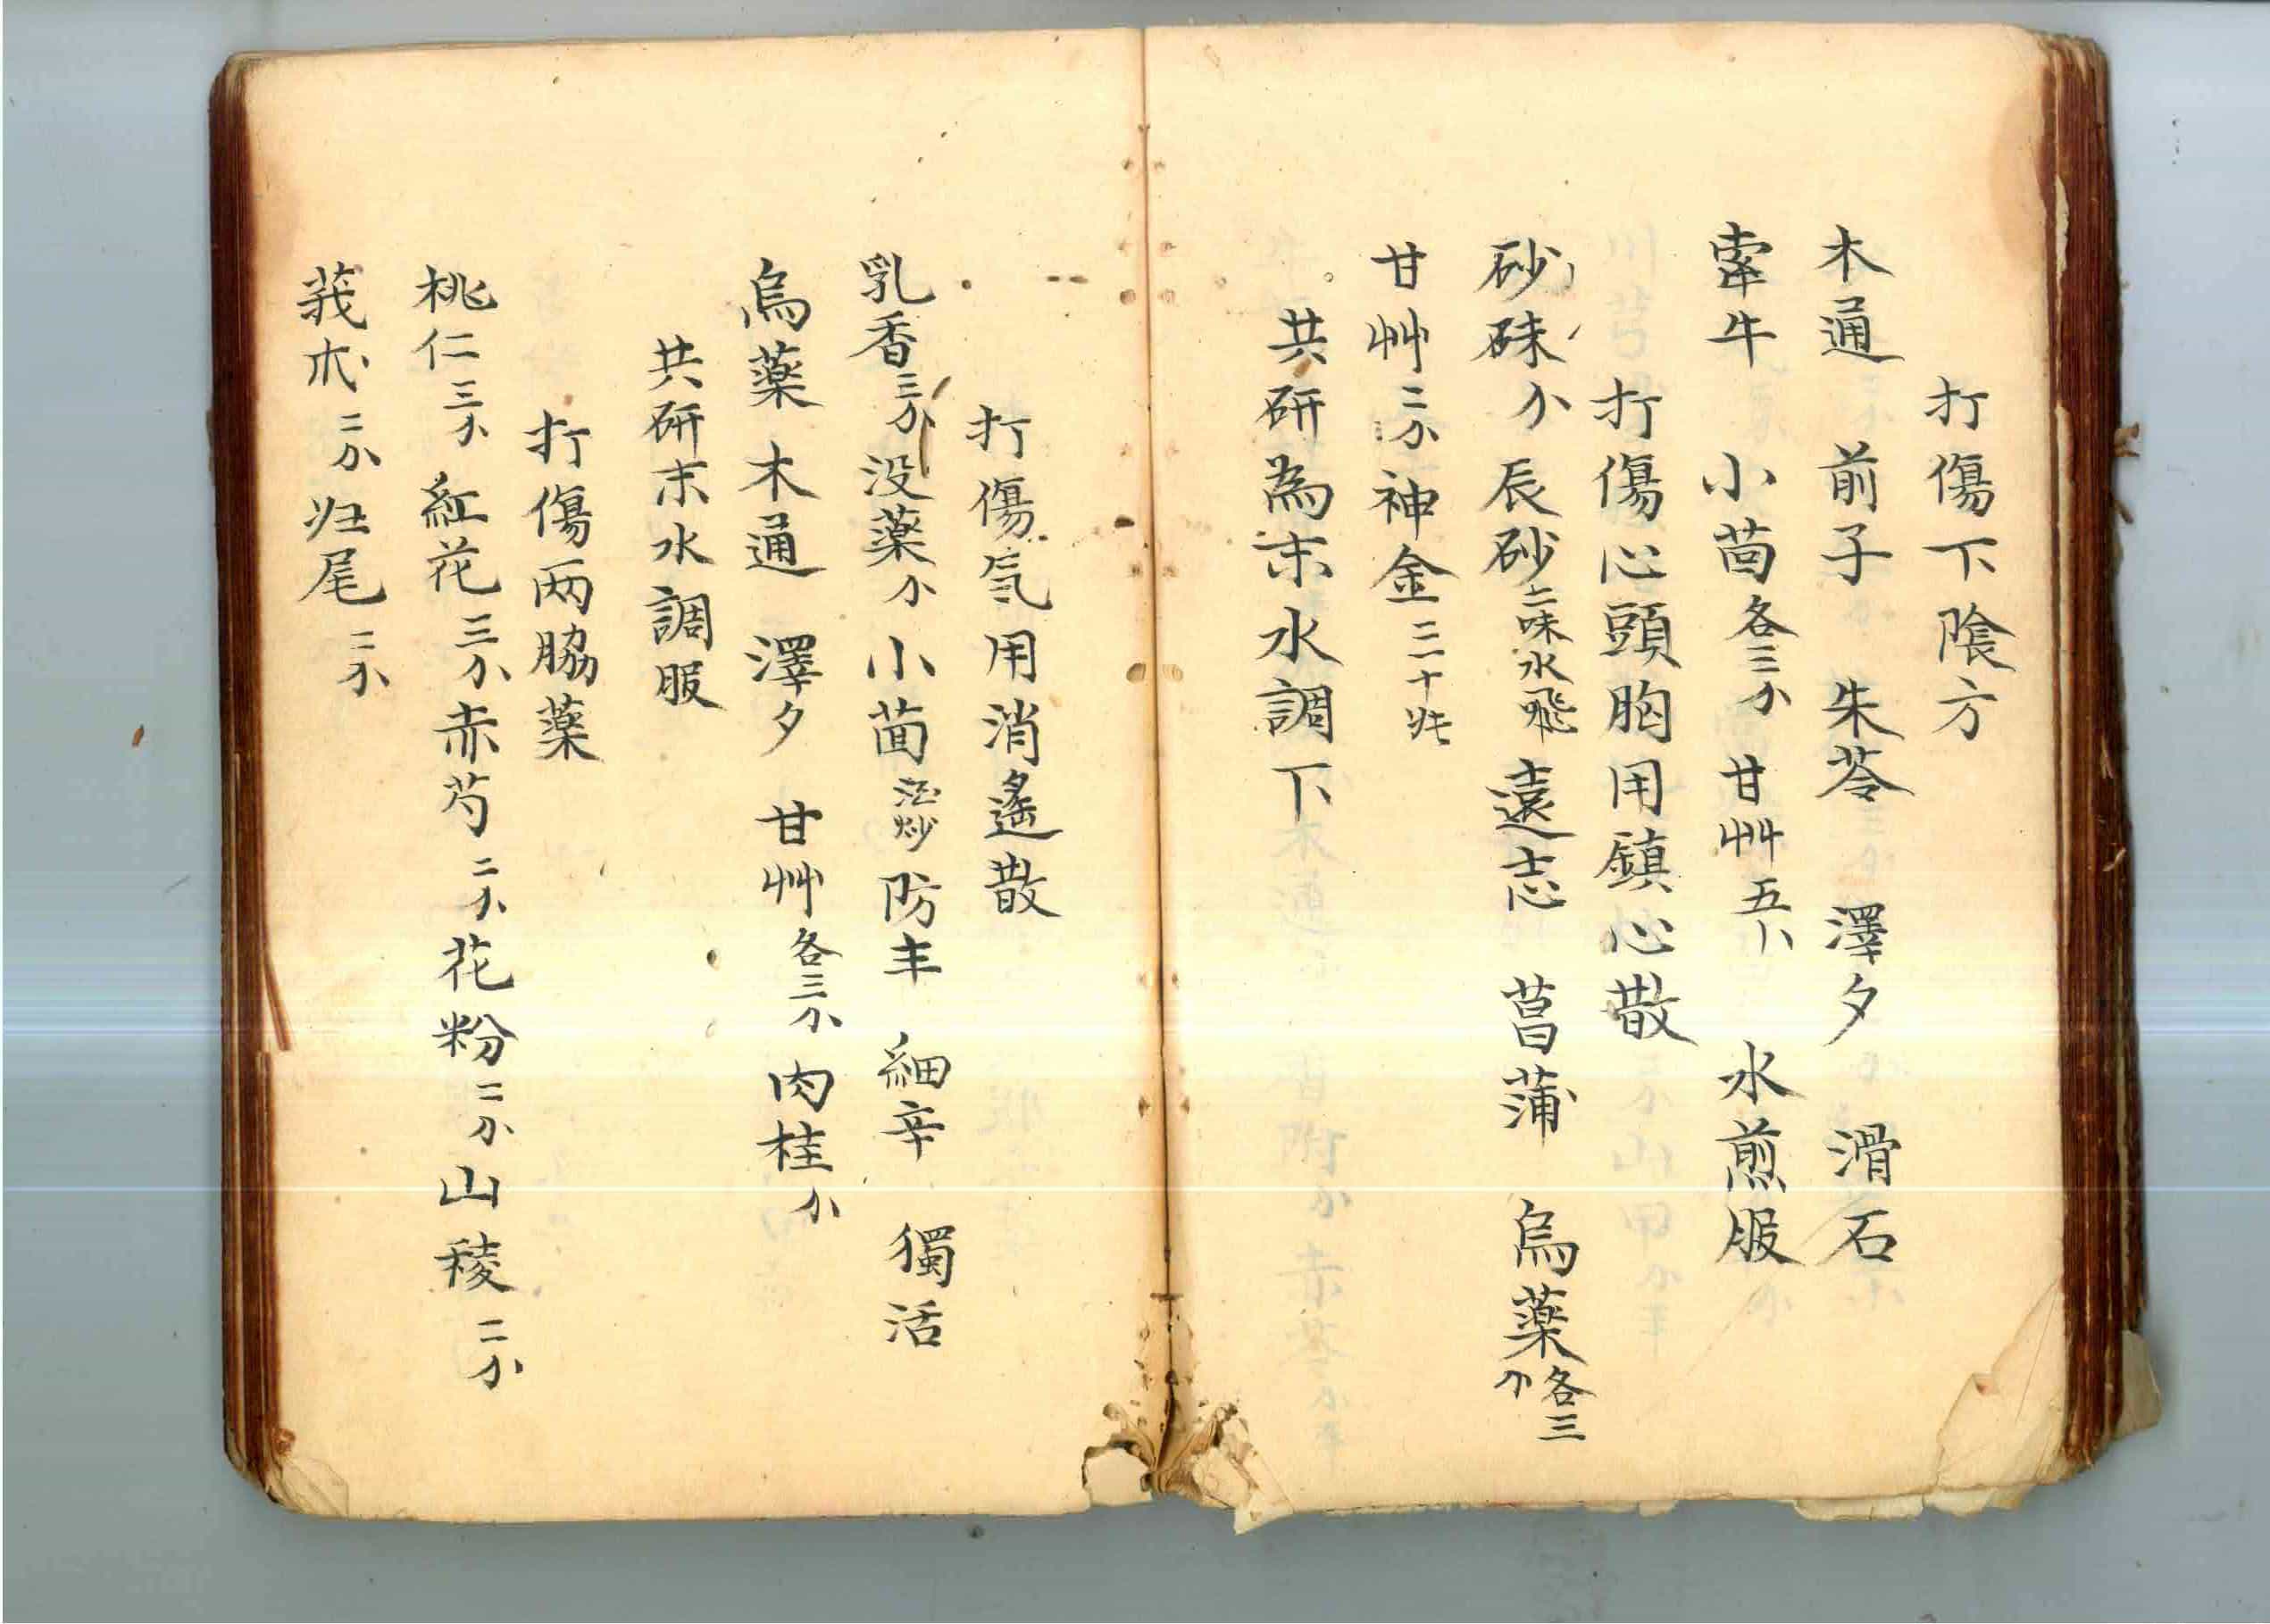 打傷下陰方
木通 前子 朱苓 澤夕 滑石
牽牛 小茴各三分 甘艸五卜 水煎服
打傷心頭胸用鎮心散
砂硃分 辰砂二味水飛 遠志 菖蒲 烏藥各三分
甘艸二分 神金三十
共研為末水調下
打傷氣用消遙散
乳香三分 没藥分 小茴 炒 防丰 細辛 獨活
烏藥 木通 澤夕 甘艸各三分 肉桂分
共研末水調服
打傷两脇藥
桃仁三分 紅花三分 赤芍二分 花粉二分 山稜二分
莪朮二分 归尾二分